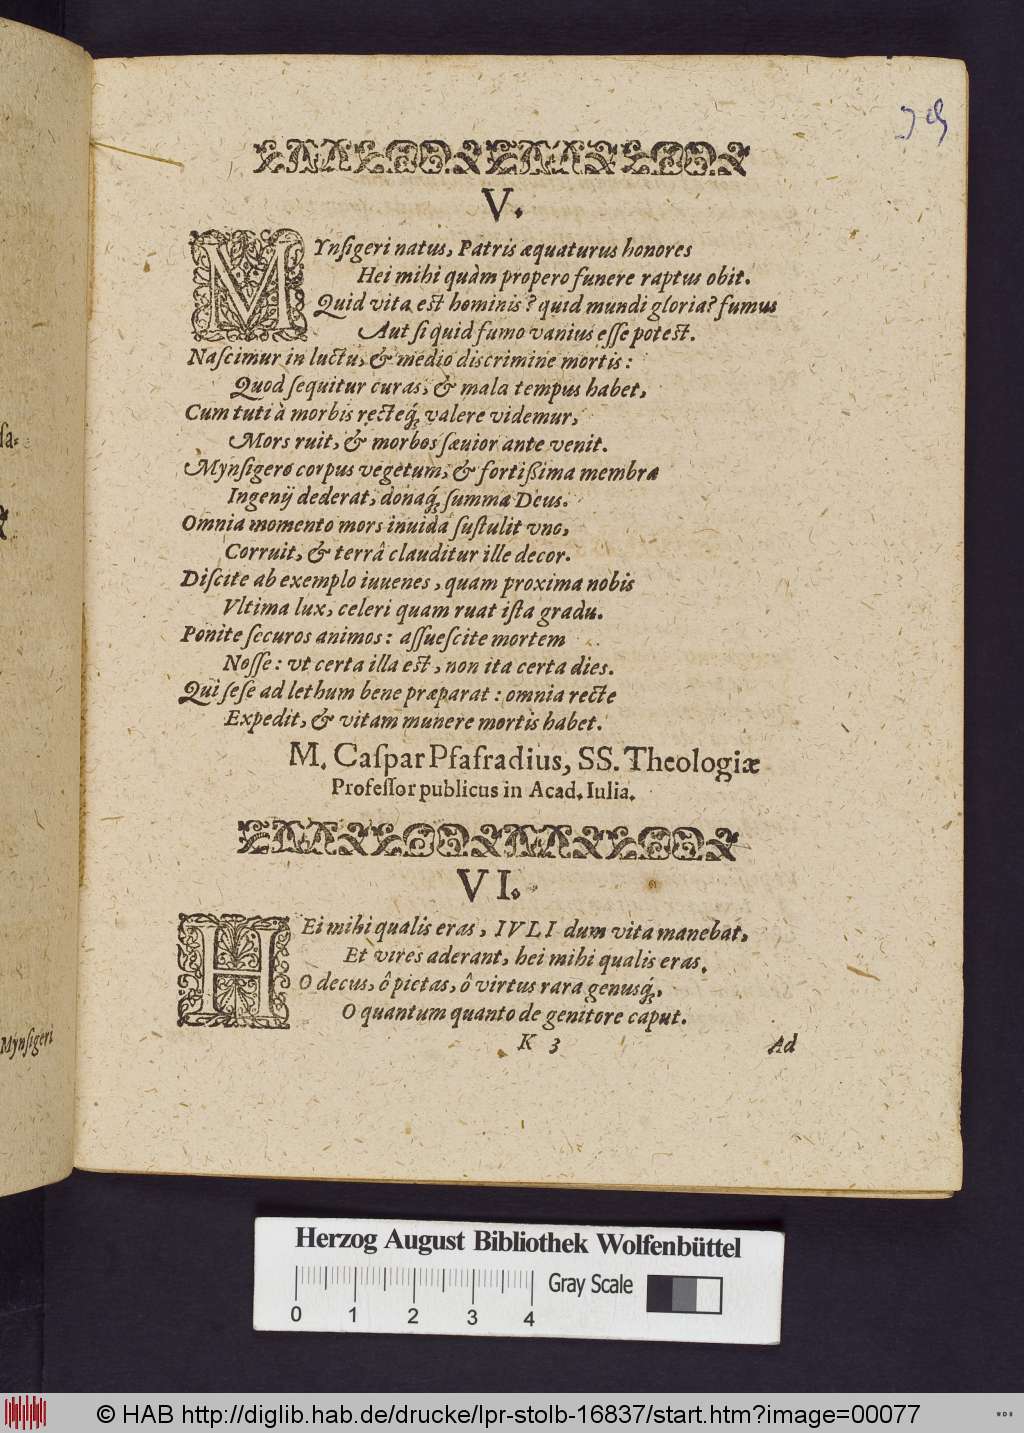 V.
MYnſigeri natus, Patris æquaturus honores
Hei mihi quàm propero funere raptus obit.
Quid vita est hominis? quid mundi gloria? fumus
Aut ſi quid fumo vanius eſſe potest.
Naſcimur in luctu, & medio discrimine mortis:
Quod ſequitur curas, & mala tempus habet,
Cum tuti à morbis recteq́; valere videmur,
Mors ruit, & morbos ſæuior ante venit.
Mynſigero corpus vegetum, & fortißima membra
Ingenij dederat, donaq́; ſumma Deus.
Omnia momento mors inuida ſuſtulit vno,
Corruit, & terrâ clauditur ille decor.
Diſcite ab exemplo iuuenes, quam proxima nobis
Vltima lux, celeri quam ruat iſta gradu.
Ponite ſecuros animos: aſſueſcite mortem
Noſſe: vt certa illa est, non ita certa dies.
Qui ſeſe ad lethum bene præparat: omnia recte
Expedit, & vitam munere mortis habet.
M. Caſpar Pfafradius, SS. Theologiæ
Profeſſor publicus in Acad. Iulia.
VI.
HEi mihi qualis eras, IVLI dum vita manebat,
Et vires aderant, hei mihi qualis eras.
O decus, ô pietas, ô virtus rara genusq́;,
O quantum quanto de genitore caput.
K 3 Ad
ſa-
Mynſigeri
Herzog August Bibliothek Wolfenbüttel
Gray Scale
0 1 2 3 4
© HAB http://diglib.hab.de/drucke/lpr-stolb-16837/start.htm?image=00077